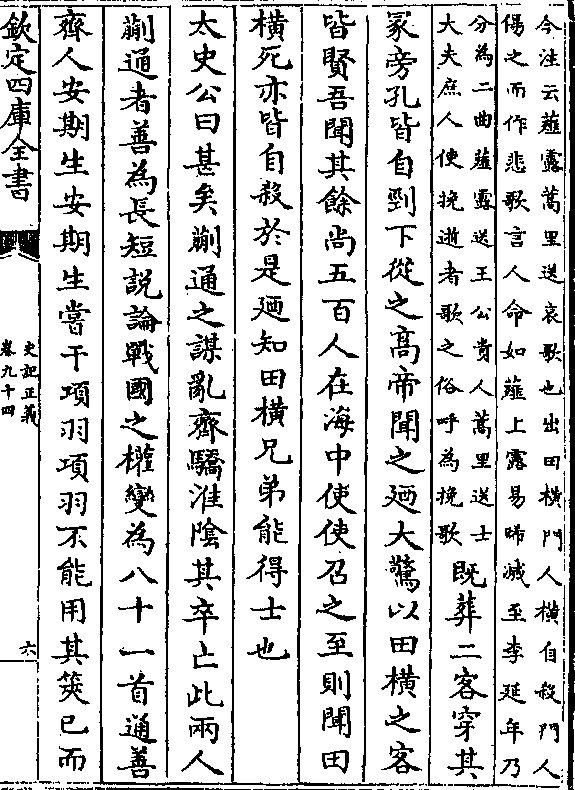 今注云薤露蒿里送哀歌也出田橫門人橫自殺門人
傷之而作悲歌言人命如薤上露易晞滅至李延年乃
分為二曲薤露送王公貴人蒿里送士
大夫庶人使挽逝者歌之俗呼為挽歌
既葬二客穿其
冢旁孔皆自剄下從之髙帝聞之廼大驚以田橫之客
皆賢吾聞其餘尚五百人在海中使使召之至則聞田
橫死亦皆自殺於是廼知田橫兄弟能得士也
太史公曰甚矣蒯通之謀亂齊驕淮陰其卒亡此兩人
蒯通者善為長短説論戰國之權變為八十一首通善
齊人安期生安期生嘗干項羽項羽不能用其筴已而
欽定四庫全書
史記正義
卷九十四
六